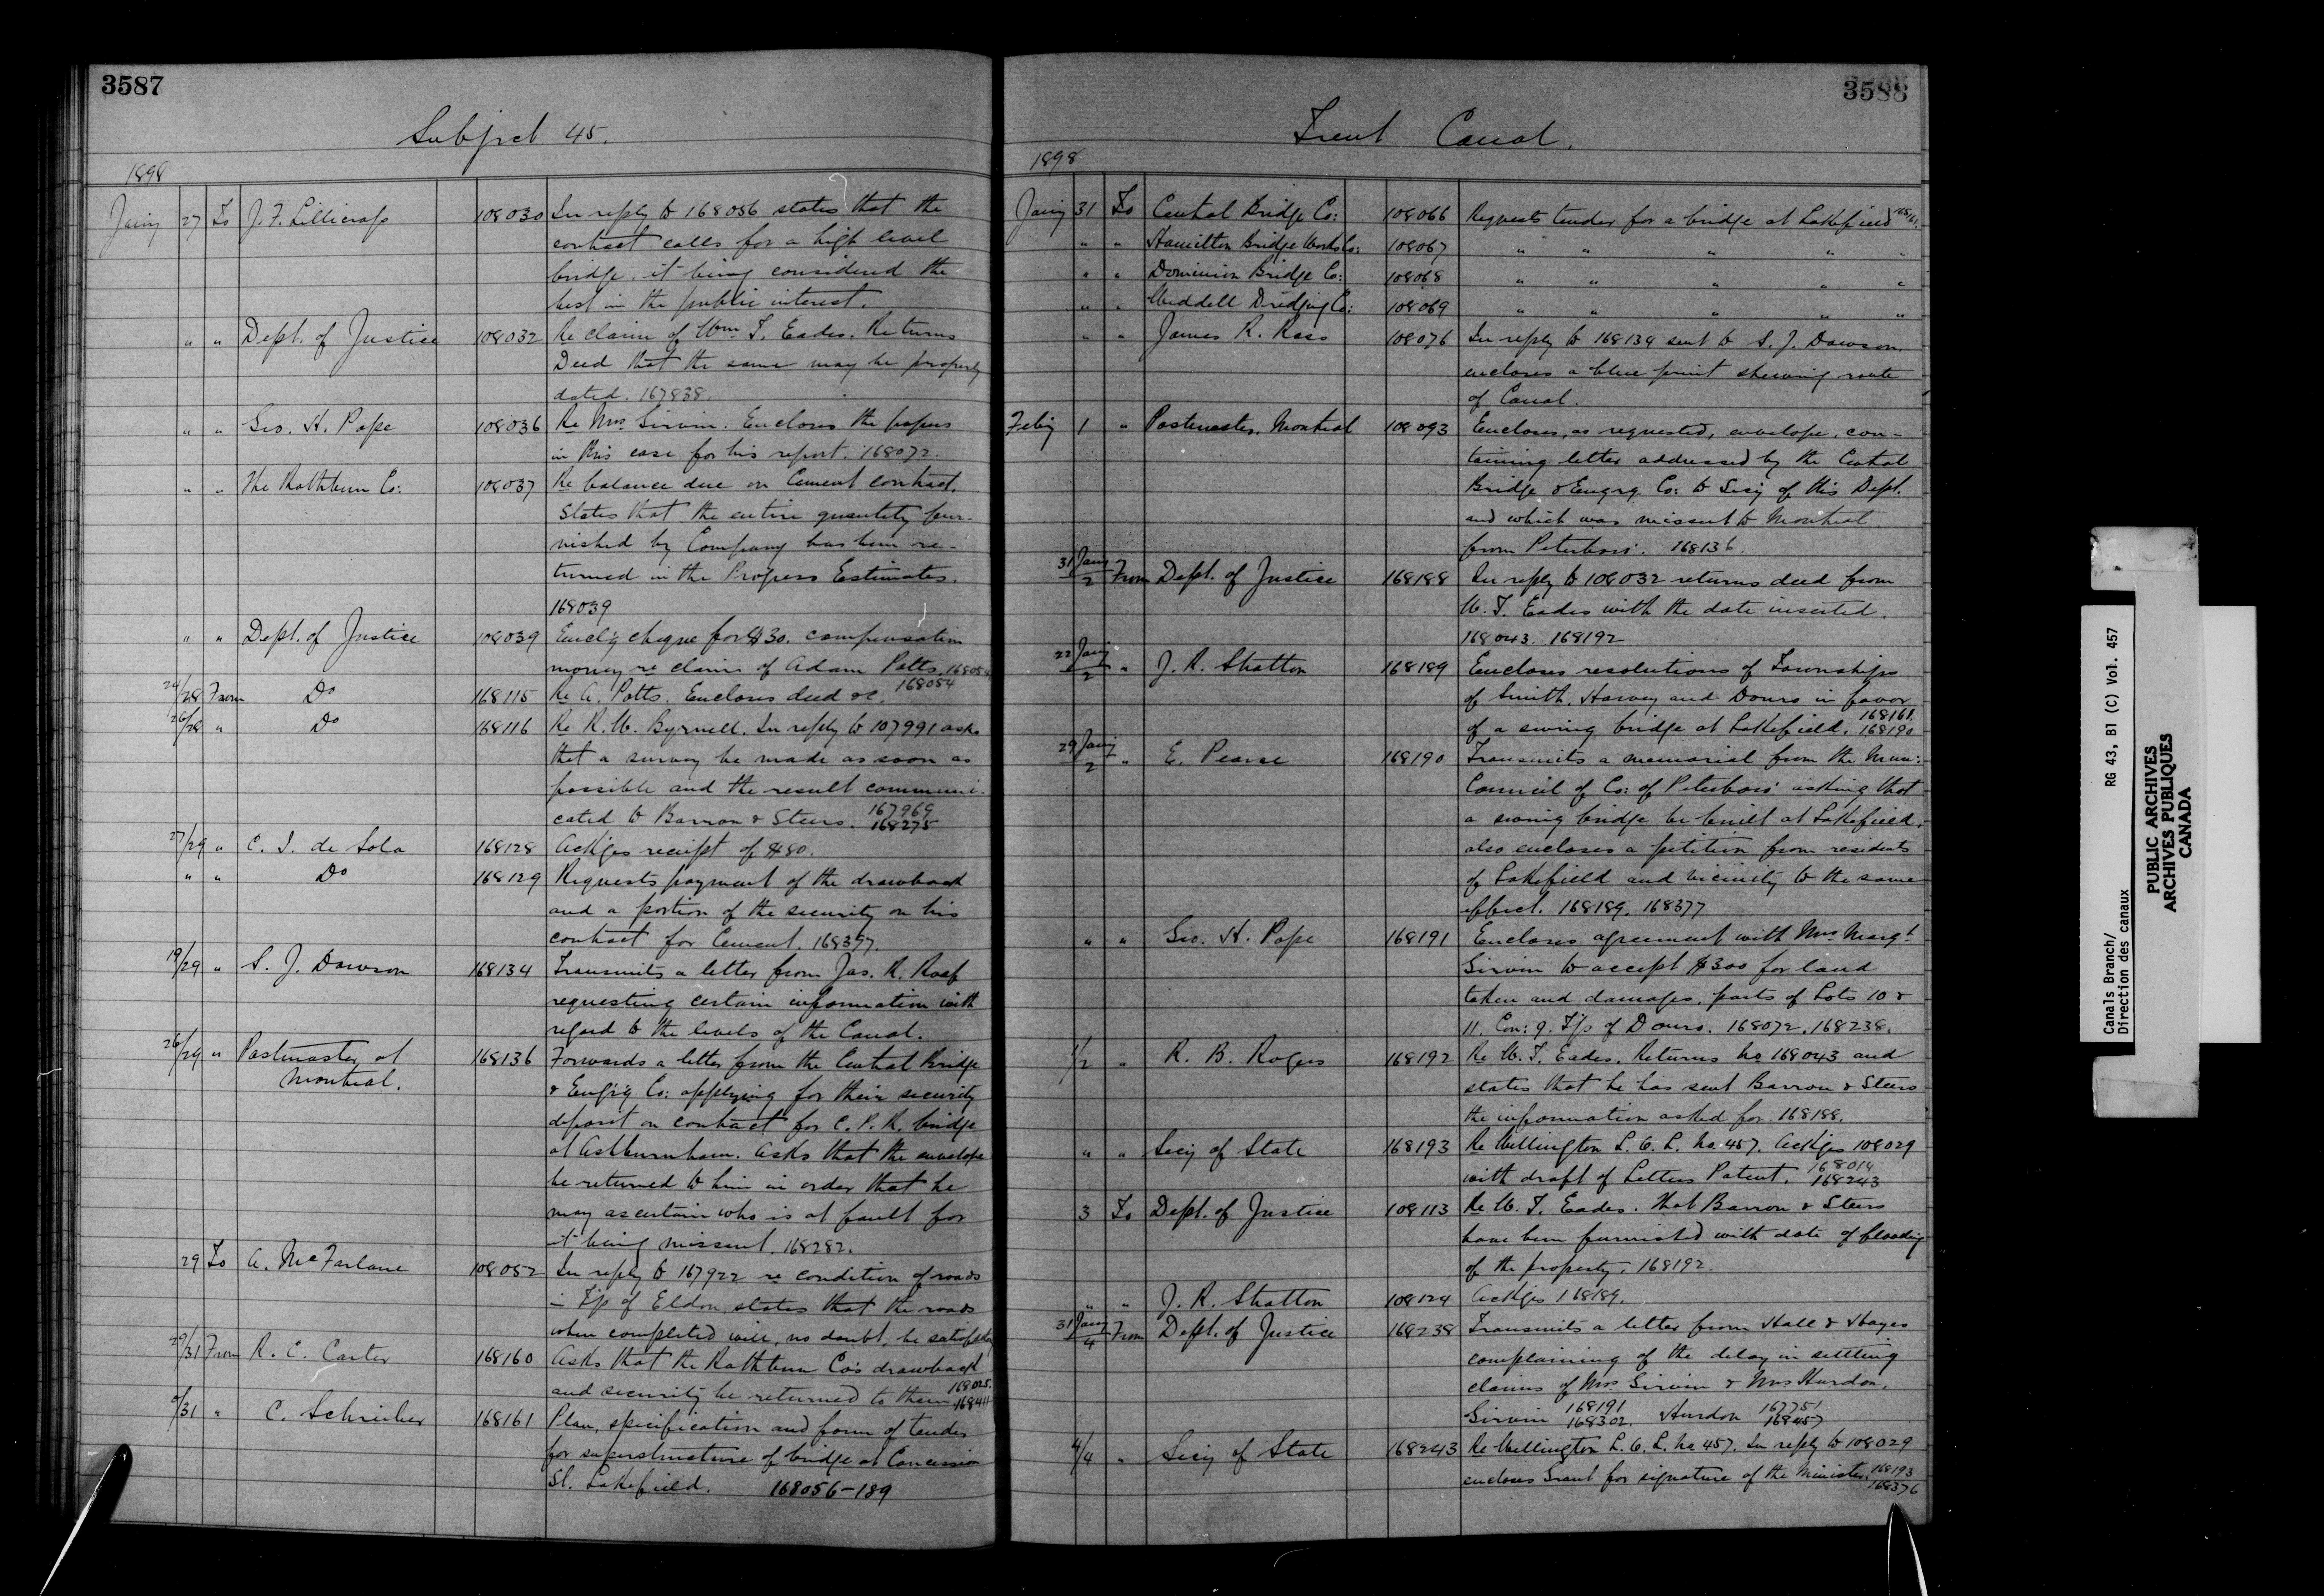 3587
Subject 45.
1898
Jany 27 To J. F. Lillicrap 108030 In reply to 168056 states that the
contract calls for a high level
bridge, it being considered the
best in the public interest.
" " Dept. of Justice 108032 Re claim of Wm. T. Eades. Returns
Deed that the same may be properly
dated. 167838.
" " Geo. H. Pope 108036 Re Mrs Girvin. Encloses the papers
in this case for his report. 168072.
" " The Rathbun Co: 108037 Re balance due on Cement contract.
States that the entire quantity fur-
nished by Company has been re-
turned in the Progress Estimates.
168039
" " Dept. of Justice 108039 Encl'g cheque for $30. compensation
money re claim of Adam Potts. 168054
24/28 From Do 168115 Re A. Potts. Encloses deed &c. 168054
26/28 " Do 168116 Re R. W. Byrnell. In reply to 107991 asks
that a survey be made as soon as
possible and the result communi-
cated to Barron & Steers. 167969
168275
27/29 " C. I. de Sola 168128 Ackges receipt of $80.
" " Do 168129 Requests payment of the drawback
and a portion of the security on his
contract for Cement. 168397.
19/29 " S. J. Dawson 168134 Transmits a letter from Jas. R. Roaf
requesting certain information with
regard to the levels of the Canal.
26/29 " Postmaster at 168136 Forwards a letter from the Central Bridge
Montreal. & Eng'r'g Co: applying for their security
deposit on contract for C. P. R. bridge
at Ashburnham. Asks that the envelope
be returned to him in order that he
may ascertain who is at fault for
it being missent. 168282.
29 To A. McFarlane 108052 In reply to 167922 re condition of roads
in T'p of Eldon, states that the roads
when completed will, no doubt, be satisfactory
29/31 From R. C. Carter 168160 Asks that the Rathbun Co's drawback
and security be returned to them. 168025.
168411
/31 " C. Schreiber 168161 Plan, specification and form of tender
for superstructure of bridge at Concession
St. Lakefield. 168056-189
3588
Trent Canal.
1898
Jany 31 To Central Bridge Co: 108066 Requests tender for a bridge at Lakefield 168161.
" " Hamilton Bridge Works Co: 108067 " " " " "
" " Dominion Bridge Co: 108068 " " " " "
" " Weddell Dredging Co: 108069 " " " " "
" " James R. Roas 108076 In reply to 168134 sent to S. J. Dawson.
encloses a blue print shewing route
of Canal.
Feby 1 " Postmaster, Montreal 108093 Encloses, as requested, envelope, con-
taining letter addressed by the Central
Bridge & Engrg. Co: to Secy of this Dept.
and which was missent to Montreal
from Peterboro'. 168136
31 Jany/2 From Dept. of Justice 168188 In reply to 108032 returns deed from
W. T. Eades with the date inserted.
168043. 168192
22 Jany/2 " J. R. Stratton 168189 Encloses resolutions of Townships
of Smith, Harvey and Douro in favor
of a swing bridge at Lakefield. 168161.
168190
29 Jany/2 " E. Pearse 168190 Transmits a memorial from the Mun:
Council of Co: of Peterboro' asking that
a swing bridge be built at Lakefield,
also encloses a petition from residents
of Lakefield and vicinity to the same
effect. 168189. 168377
" " Geo. H. Pope 168191 Encloses agreement with Mrs Margt
Girvin to accept $300 for land
taken and damages, parts of Lots 10 &
11. Con: 9. T'p of Douro. 168072. 168238.
1/2 " R. B. Rogers 168192 Re W. T. Eades. Returns No 168043 and
states that he has sent Barron & Steers
the information asked for. 168188.
" " Secy of State 168193 Re Wellington L. O. L. No. 457. Ackges 108029
with draft of Letters Patent. 168014
168243
3 To Dept. of Justice 108113 Re W. T. Eades. That Barron & Steers
have been furnished with date of flooding
of the property. 168192.
" " J. R. Stratton 108124 Ackges 168189.
31 Jany/4 From Dept. of Justice 168238 Transmits a letter from Hall & Hayes
complaining of the delay in settling
claims of Mrs Girvin & Mrs Hurdon.
Girvin 168191 Hurdon 167751
168302. 168457
4/4 " Secy of State 168243 Re Wellington L. O. L. No 457. In reply to 108029
encloses Grant for signature of the Minister. 168193
168376
Canals Branch/
Direction des canaux
RG 43, B1 (C) Vol. 457
PUBLIC ARCHIVES
ARCHIVES PUBLIQUES
CANADA